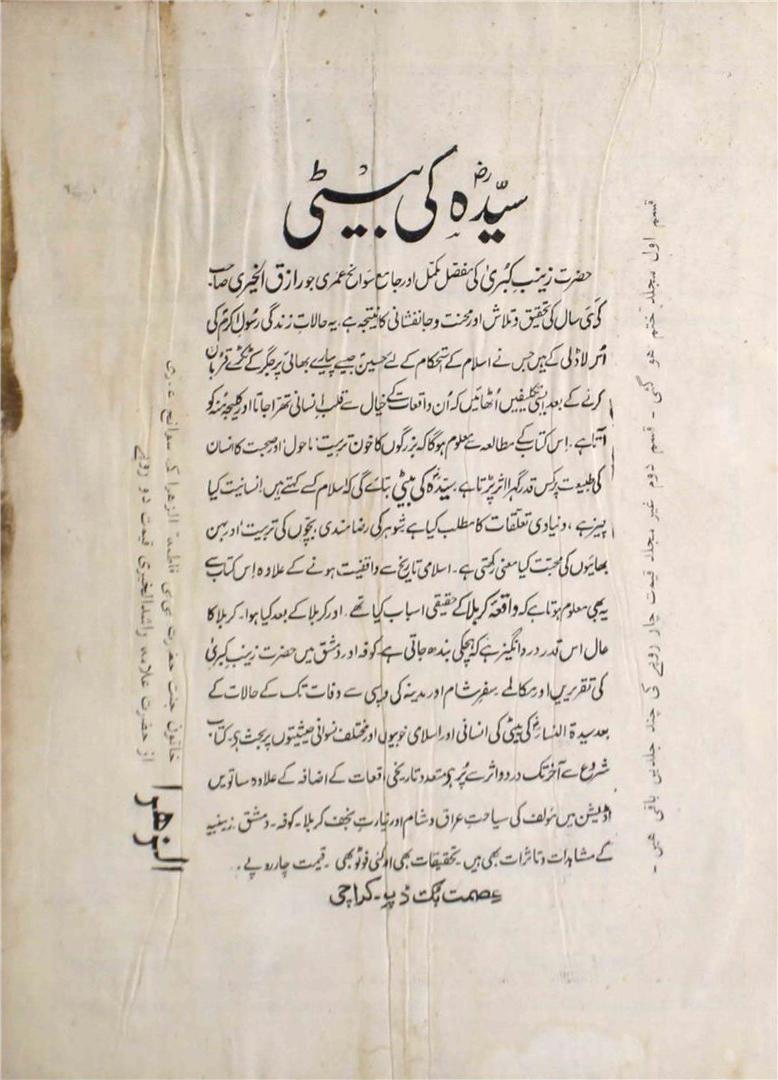 سیّدہؓ کی بیٹی
حضرت زینب کبریٰ کی مفصل مکمل اور جامع سوانح عمری جو رازق الخیری صاحب
کی کئی سال کی تحقیق و تلاش اور محنت و جانفشانی کا نتیجہ ہے، یہ حالات زندگی رسول اکرم کی
اس لاڈلی کے ہیں جس نے اسلام کے استحکام کے لئے حسین جیسے پیارے بھائی پر جگر کے ٹکڑے قربان
کرنے کے بعد ایسی تکلیفیں اٹھائیں کہ اُن واقعات کے خیال سے قلب انسانی تھرا جاتا اور کلیجہ منہ کو
آتا ہے۔ اِس کتاب کے مطالعہ سے معلوم ہوگا کہ بزرگوں کا خون تربیت ماحول اور صحبت کا انسان
کی طبیعت پر کس قدر گہرا اثر پڑتا ہے۔ سیّدہؓ کی بیٹی بتائے گی کہ اسلام کسے کہتے ہیں انسانیت کیا
چیز ہے، دنیاوی تعلقات کا مطلب کیا ہے شوہر کی رضامندی بچوں کی تربیت اور بہن
بھائیوں کی محبت کیا معنی رکھتی ہے۔ اسلامی تاریخ سے واقفیت ہونے کے علاوہ اِس کتاب سے
یہ بھی معلوم ہوتا ہے کہ واقعہ کربلا کے حقیقی اسباب کیا تھے۔ اور کربلا کے بعد کیا ہوا۔ کربلا کا
حال اس قدر درد انگیز ہے کہ ہچکی بندھ جاتی ہے کوفہ اور دمشق میں حضرت زینب کبریٰ
کی تقریریں اور مکالمے سفر شام اور مدینہ کی واپسی سے وفات تک کے حالات کے
بعد سیدۃ النساءؓ کی بیٹی کی انسانی اور اسلامی خوبیوں اور مختلف نسوانی حیثیتوں پر بحث ہے۔ کتاب
شروع سے آخر تک درد و اثر سے پُر ہے متعدد تاریخی واقعات کے اضافہ کے علاوہ ساتویں
اڈیشن میں مؤلف کی سیاحت عراق و شام اور زیارت نجف کربلا۔ کوفہ۔ دمشق۔ زینبیہ
کے مشاہدات و تاثرات بھی ہیں۔ تحقیقات بھی اور کئی فوٹو بھی۔ قیمت چار روپے۔
عصمت بک ڈپو۔ کراچی
قسم اول مجلد ختم ہو گئی۔ قسم دوم غیر مجلد قیمت چار روپے کی چند جلدیں باقی ہیں۔
الزھرا
خاتون جنت حضرت بی بی فاطمۃ الزھرا کی سوانح عمری
از حضرت علامہ راشد الخیری قیمت دو روپے